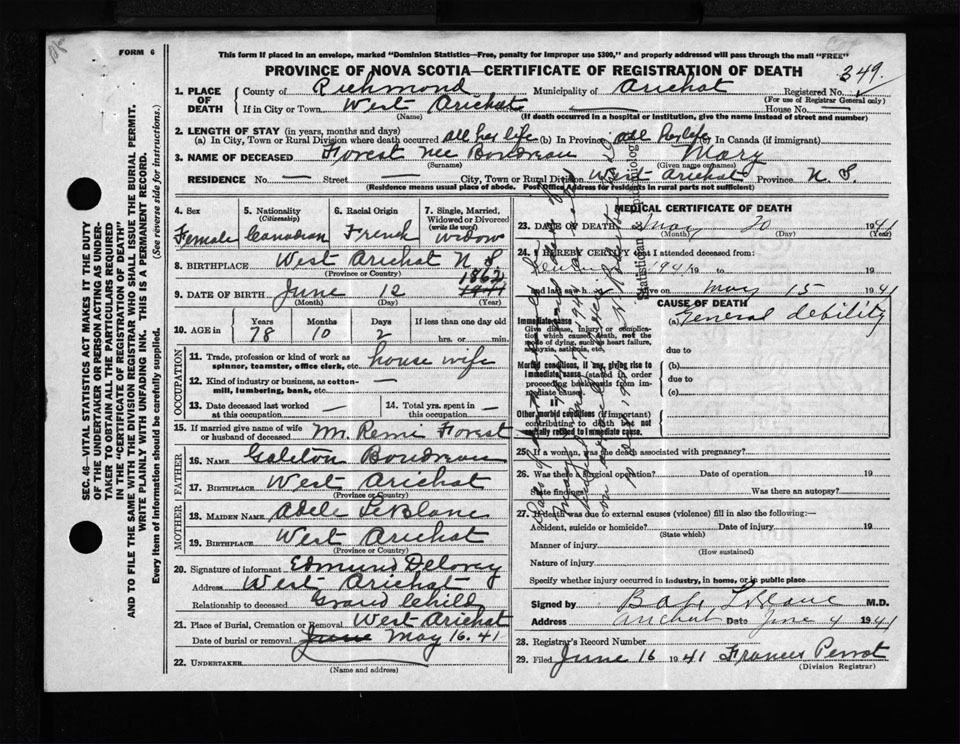 FORM 6
This form if placed in an envelope, marked "Dominion Statistics—Free, penalty for improper use $300," and properly addressed will pass through the mail "FREE"
PROVINCE OF NOVA SCOTIA—CERTIFICATE OF REGISTRATION OF DEATH
349.
1. PLACE OF DEATH
County of Richmond Municipality of Arichat Registered No.
(For use of Registrar General only)
If in City or Town West Arichat Street House No. —
(Name) (If death occurred in a hospital or institution, give the name instead of street and number)
2. LENGTH OF STAY (in years, months and days)
(a) In City, Town or Rural Division where death occurred all her life (b) In Province all her life (c) In Canada (if immigrant)
3. NAME OF DECEASED Forest nee Boudreau Mary
(Surname) (Given name or names)
RESIDENCE No. — Street — City, Town or Rural Division West Arichat Province N. S.
(Residence means usual place of abode. Post Office Address for residents in rural parts not sufficient)
4. Sex
Female
5. Nationality
(Citizenship)
Canadian
6. Racial Origin
French
7. Single, Married, Widowed or Divorced
(write the word)
widow
8. BIRTHPLACE West Arichat N S
(Province or Country)
1862
9. DATE OF BIRTH June 12
(Month) (Day) (Year)
10. AGE in
Years Months Days If less than one day old
78 10 2 hrs. or min.
OCCUPATION
11. Trade, profession or kind of work as spinner, teamster, office clerk, etc. house wife
12. Kind of industry or business, as cotton-mill, lumbering, bank, etc. —
13. Date deceased last worked at this occupation —
14. Total yrs. spent in this occupation —
15. If married give name of wife or husband of deceased Mr. Remi Forest
FATHER
16. NAME Boudreau
17. BIRTHPLACE West Arichat
(Province or Country)
MOTHER
18. MAIDEN NAME Adele LeBlanc
19. BIRTHPLACE West Arichat
(Province or Country)
20. Signature of informant Edmund Delorey
Address West Arichat
Relationship to deceased Grand Child
21. Place of Burial, Cremation or Removal West Arichat
Date of burial or removal June May 16. 41
22. UNDERTAKER
(Name and address)
MEDICAL CERTIFICATE OF DEATH
23. DATE OF DEATH May 1941
(Month) (Day) (Year)
24. I HEREBY CERTIFY that I attended deceased from:
1941
and last saw h alive on May 15 1941
CAUSE OF DEATH
Immediate cause
Give disease, injury or complication which caused death, not the mode of dying, such as heart failure, asphyxia, asthenia, etc.
(a) General debility
due to
Morbid conditions, if any, giving rise to immediate cause (stated in order proceeding backwards from immediate cause)
(b)
due to
(c)
II
Other morbid conditions (if important) contributing to death but not causally related to immediate cause.
25. If a woman, was the death associated with pregnancy?
26. Was there a surgical operation? Date of operation 19
State findings Was there an autopsy?
27. If death was due to external causes (violence) fill in also the following:—
Accident, suicide or homicide? Date of injury 19
(State which)
Manner of injury
(How sustained)
Nature of injury
Specify whether injury occurred in industry, in home, or in public place
Signed by LeBlanc M.D.
Address Arichat Date June 4 1941
28. Registrar's Record Number
29. Filed June 16 1941 Frances Perrot
(Division Registrar)
SEC. 46—VITAL STATISTICS ACT MAKES IT THE DUTY
OF THE UNDERTAKER OR PERSON ACTING AS UNDER-
TAKER TO OBTAIN ALL THE PARTICULARS REQUIRED
IN THE "CERTIFICATE OF REGISTRATION OF DEATH"
AND TO FILE THE SAME WITH THE DIVISION REGISTRAR WHO SHALL ISSUE THE BURIAL PERMIT.
WRITE PLAINLY WITH UNFADING INK. THIS IS A PERMANENT RECORD.
Every item of information should be carefully supplied. (See reverse side for instructions.)